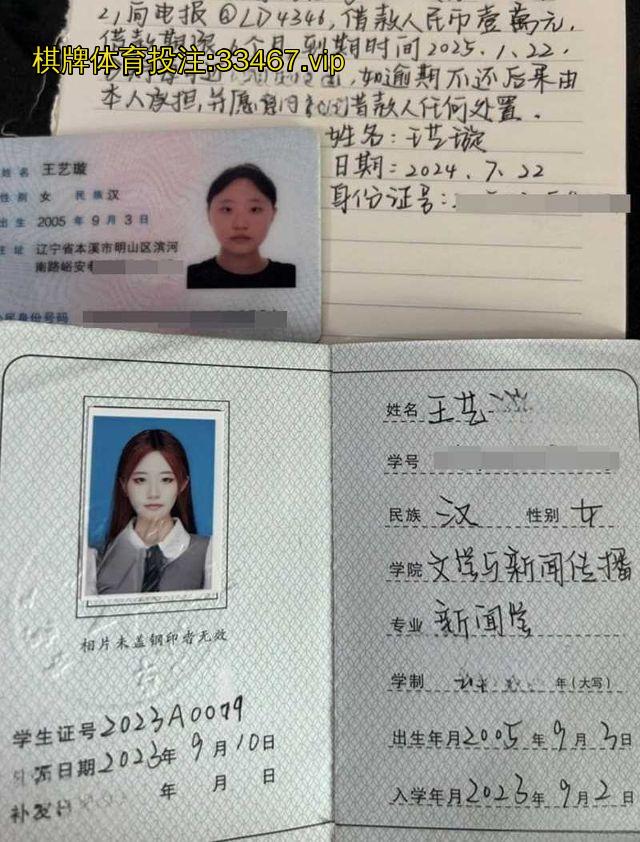 2)向电报@LD4346,借款人民币壹萬元,
借款期限 个月 到期时间2025.1.22.
棋牌体育投注:33467.vip
如逾期不还后果由
本人承担,并愿意 借款人任何处置.
姓名:王艺璇
日期:2024.7.22
身份证号:
姓名 王艺璇
性别 女 民族 汉
出生 2005 年 9 月 3 日
住址 辽宁省本溪市明山区滨河
南路峪安
公民身份号码
相片未盖钢印者无效
学生证号2023A0079
日期2023年9月10日
补发日 年 月 日
姓名 王艺
学号
民族 汉 性别 女
学院 文学与新闻传播
专业 新闻学
学制 年(大写)
出生年月2005年9月3日
入学年月2023年9月2日